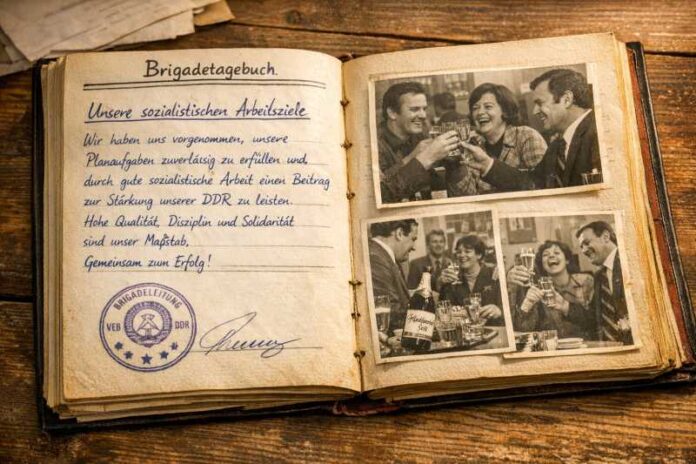 Brigadetagebuch.
Unsere sozialistischen Arbeitsziele
Wir haben uns vorgenommen, unsere
Planaufgaben zuverlässig zu erfüllen und,
durch gute sozialistische Arbeit einen Beitrag
zur Stärkung unserer DDR zu leisten.
Hohe Qualität, Disziplin und Solidarität
sind unser Maßstab.
Gemeinsam zum Erfolg!
BRIGADELEITUNG
VEB DDR
Sekt